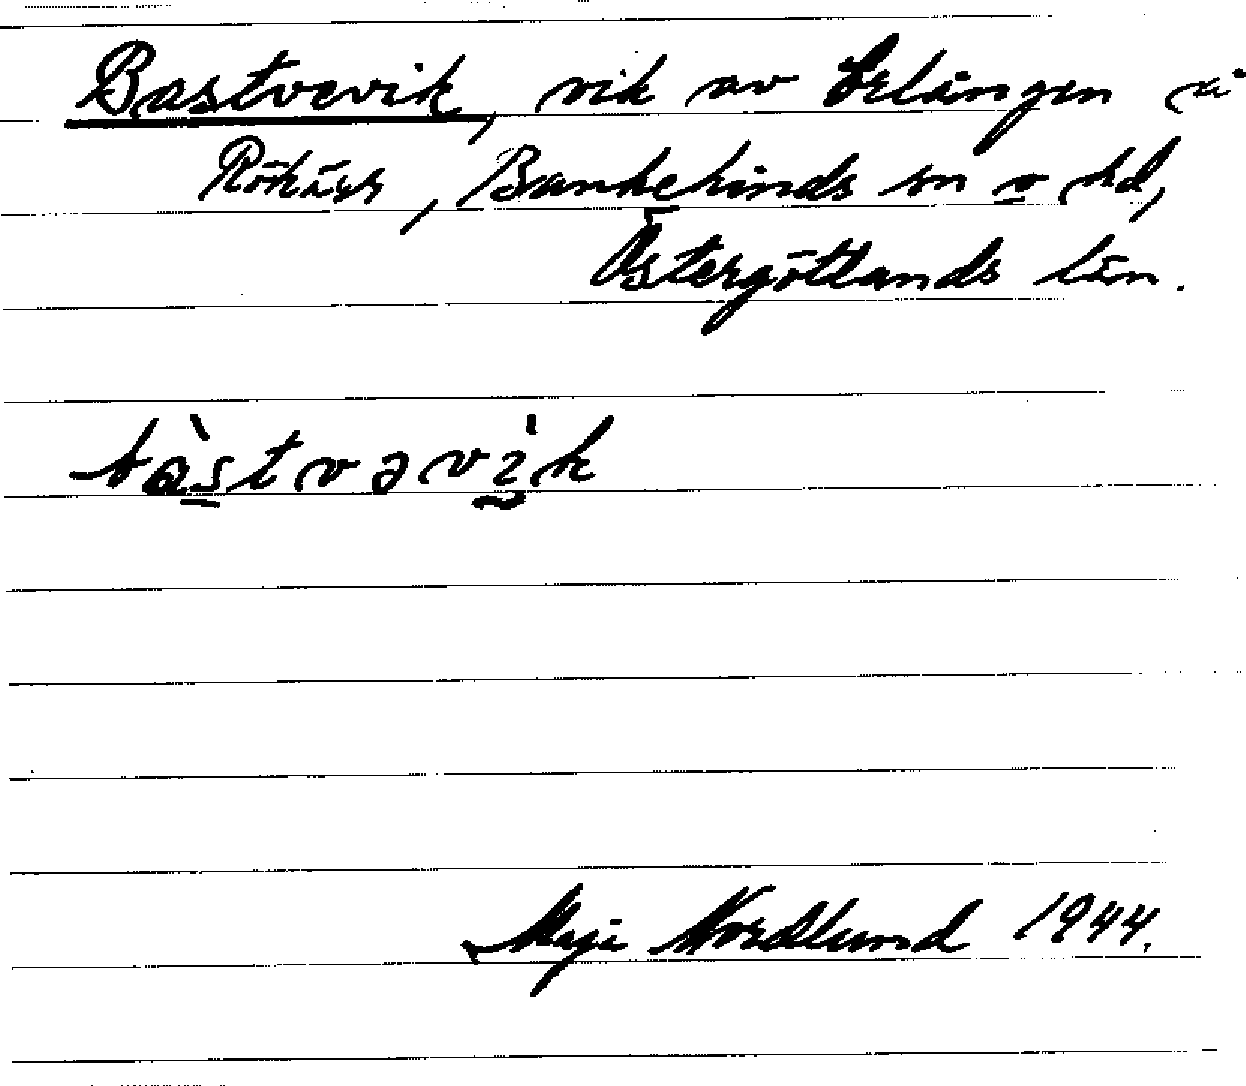 Bastvevik, vik av Erlången å
Röknäs, Bankekinds sn o hd,
Östergötlands län.
bàstvəvìk
Maja Nordlund 1944.